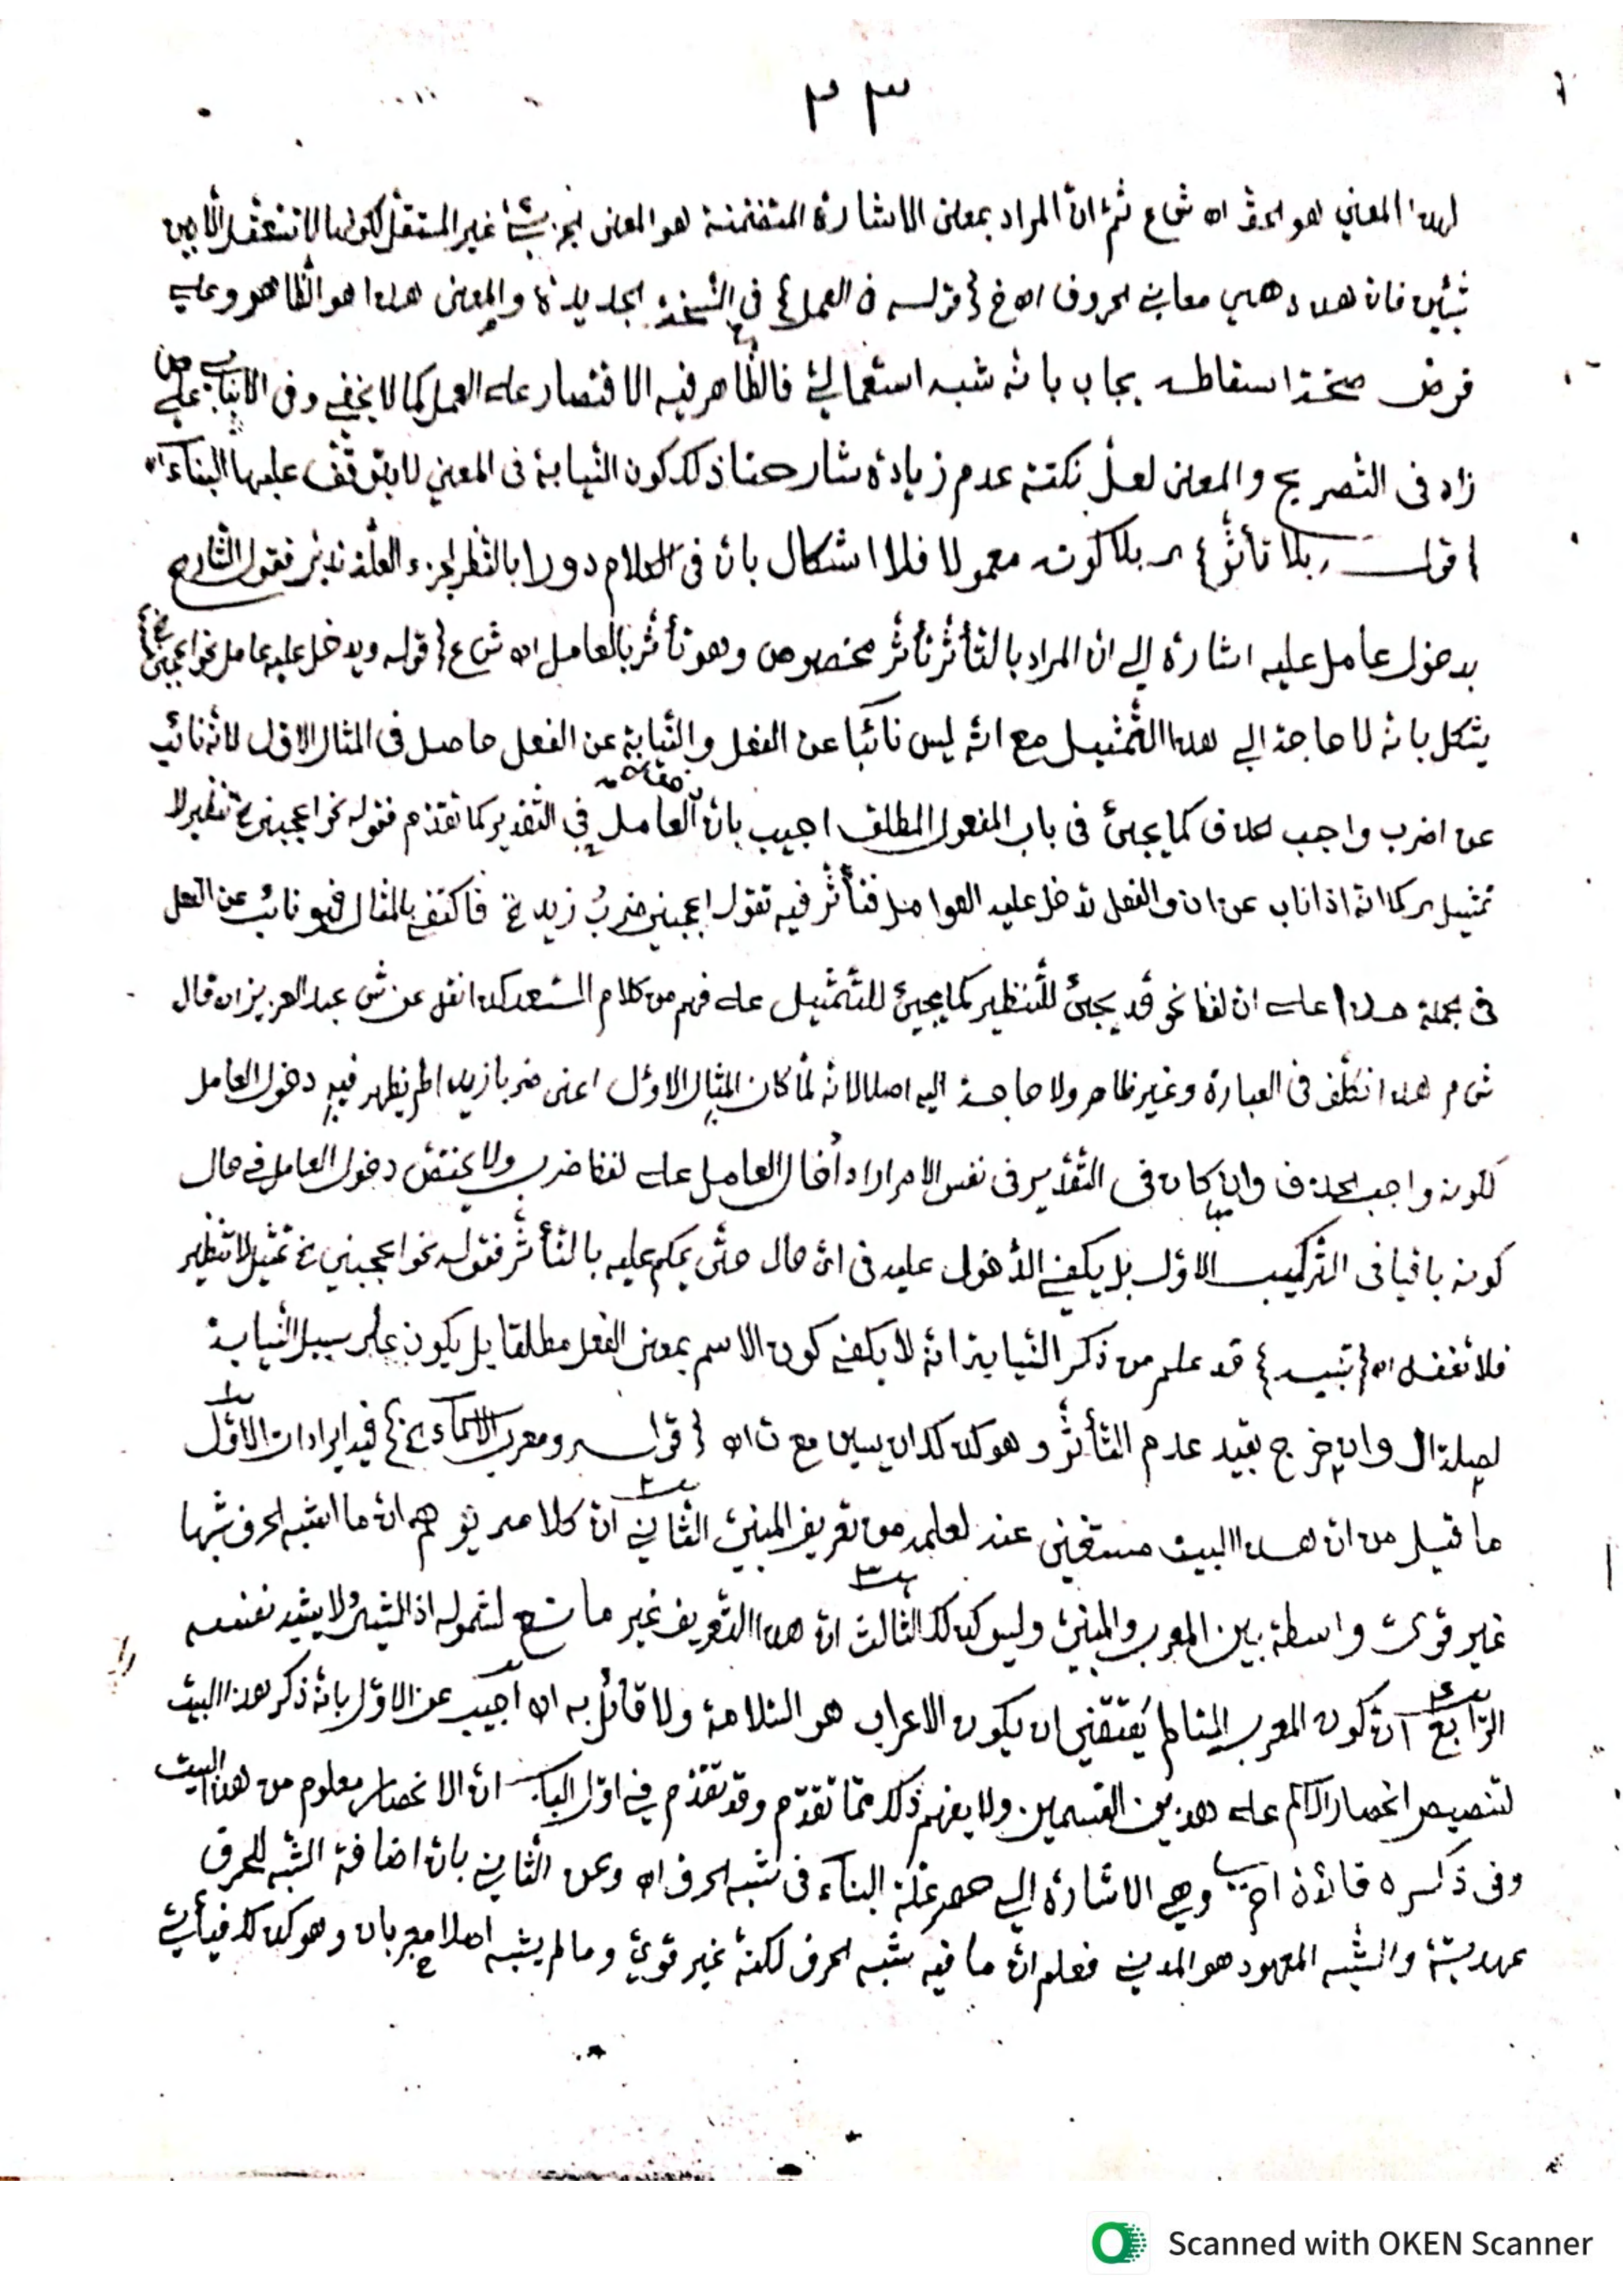 ٢٣
لهذا المعنى هو الحق اه ش ع ثم ان المراد بمعنى الاشارة المتضمنة هو المعنى الجزئي غير المستقل لكونها لا تتعقل الا بين
شيئين فان هذه هي معاني الحروف اه خ {قوله في العمل} في النسخة الجديدة والمعنى هذا هو الظاهر وعلي
فرض صحة اسقاطه يجاب بانه شبه استعمالي فالظاهر فيه الاقتصار على العمل كما لا يخفى وفي
زاد في التصريح والمعنى لعل نكتة عدم زيادة شارحنا ذلك كون النيابة في المعنى لا يتوقف عليها البناء اه
{قوله بلا تأثر} اى بلا كونه معمولا فلا اشكال بان في الكلام دورا بالنظر لجزء العلة تدبر فقول الشارح
بدخول عامل عليه اشارة الى ان المراد بالتأثر تأثر مخصوص وهو تأثر بالعامل اه ش ع {قوله ويدخل عليه عامل نحو اعجبني الخ}
يشكل بانه لا حاجة الي هذا التمثيل مع انه ليس نائبا عن الفعل والنيابة عن الفعل حاصل في المثال الاول لانه نائب
عن اضرب واجب الحذف كما يجئ في باب المفعول المطلق اجيب بان العامل في التقدير كما تقدم فقوله نحو اعجبني الخ تنظير لا
تمثيل اى كما انه اذا ناب عن ان والفعل تدخل عليه العوامل فتأثر فيه تقول اعجبني ضربُ زيد الخ فاكتفى بالمثال فهو نائب عن الفعل
في جملة هذا على ان لفظ نحو قد يجئ للتنظير كما يجئ للتمثيل على فهم من كلام السعد كذا نقل عن ش عبد العزيز اه قال
ش م هذا تكلف في العبارة وغير ظاهر ولا حاجة اليه اصلا لانه لما كان المثال الاول اعنى ضربا زيدا لم يظهر فيه دخول العامل
لكونه واجب الحذف وان كان في التقدير في نفس الامر اراد ادخال العامل على لفظ ضرب ولا يختص دخول العامل في حال
كونه باقيا في التركيب الاول بل يكفي الدخول عليه في اى حال حتى يحكم عليه بالتأثر فقوله نحو اعجبني الخ تمثيل لا تنظير
فلا تغفل اه {تنبيه} قد علم من ذكر النيابة انه لا يكفى كون الاسم بمعنى الفعل مطلقا بل يكون على سبيل النيابة
لصلة ال وان خرج بقيد عدم التأثر وهو كذلك ان يسين مع ت اه {قوله ومعرب الاسماء الخ} فيه ايرادات الاول
ما قيل من ان هذا البيت مستغنى عنه لعلمه من تعريف المبني الثاني ان كلامه يوهم ان ما اشبه الحرف شبها
غير قوى واسطة بين المعرب والمبني وليس كذلك الثالث ان هذا التعريف غير مانع لشموله اذ الشئ لا يشبه نفسه
الرابع ان كون المعرب السالم يقتضي ان يكون الاعراب هو السلامة ولا قائل به اه اجيب عن الاول بانه ذكر هذا البيت
لتنصيص انحصار الاسم على هذين القسمين ولا يفهم ذلك مما تقدم وقد تقدم في اول الباب ان الانحصار معلوم من هذا البيت
وفي ذكره فائدة اخرى وهي الاشارة الي حصر علة البناء في شبه الحرف اه وعن الثاني بان اضافة الشبه للحرف
عهدية والشبه المعهود هو المدني فعلم ان ما فيه شبه الحرف لكنه غير قوي وما لم يشبه اصلا معربان وهو كذلك فيأتي
Scanned with OKEN Scanner